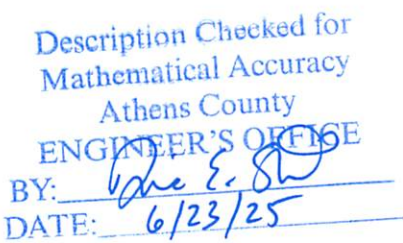 Description Checked for
Mathematical Accuracy
Athens County
ENGINEER'S OFFICE
BY: E.
DATE: 6/23/25